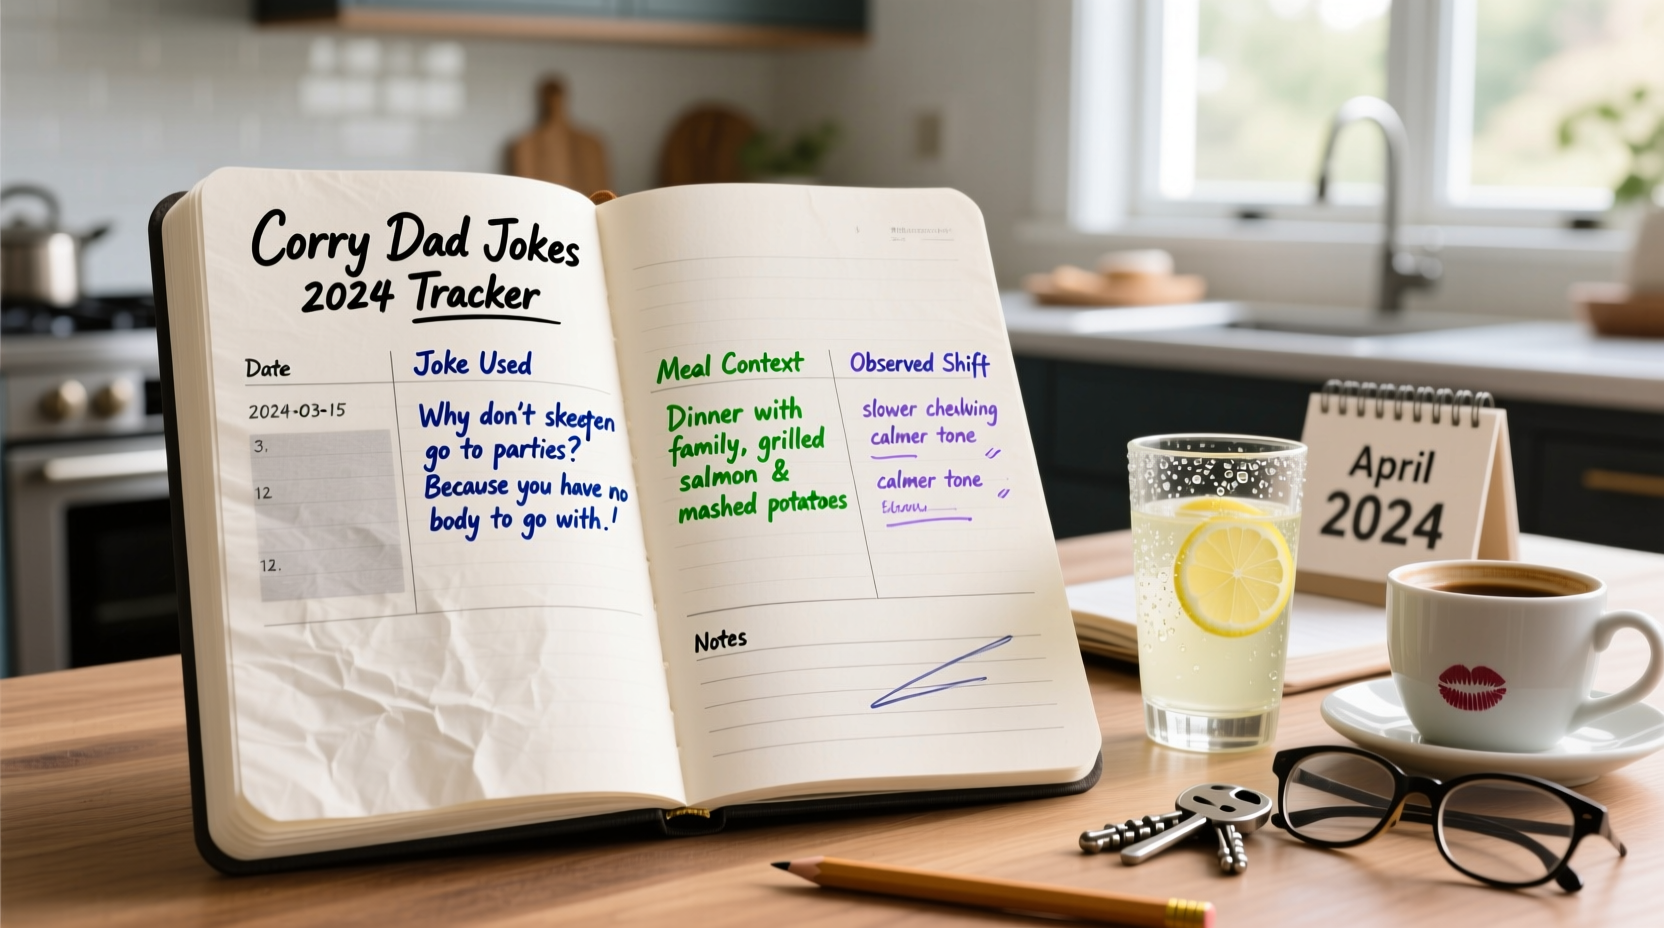 Corry Dad Jokes
2024 Tracker
Date
Joke Used
2024-03-15
3.
12
12.
Why don't
go to parties?
Because you have no
body to go with.!
Meal Context
Dinner with
family, grilled
salmon &
mashed potatoes
Observed Shift
slower
calmer tone
calmer tone
Notes
April
2024